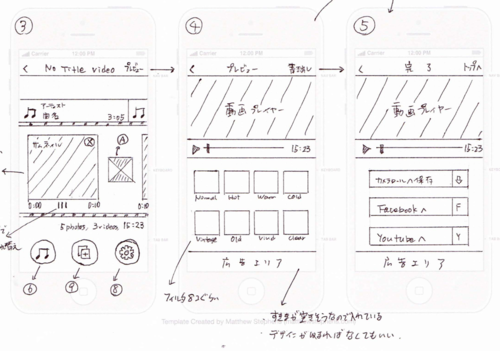 ③
Carrier 12:00 PM
< No Title video プレビュー
アーティスト
曲名 3:05
サムネイル ⓧ
Ⓐ
0:00 0:10 0:10
5 photos, 3 videos, 15:23
⑥ ⑨ ⑧
④
Carrier 12:00 PM
< プレビュー 書き出し
動画プレイヤー
15:23
Normal Hot Warm Cold
Vintage Old Vivid Clear
広告エリア
フィルタ8コぐらい
すきまが空きそうなので入れている
デザインが収まればなくてもいい。
⑤
Carrier 12:00 PM
< 完了 トップへ
動画プレイヤー
15:23
カメラロールへ保存
Facebookへ F
Youtubeへ Y
広告エリア
Template Created by Matthew